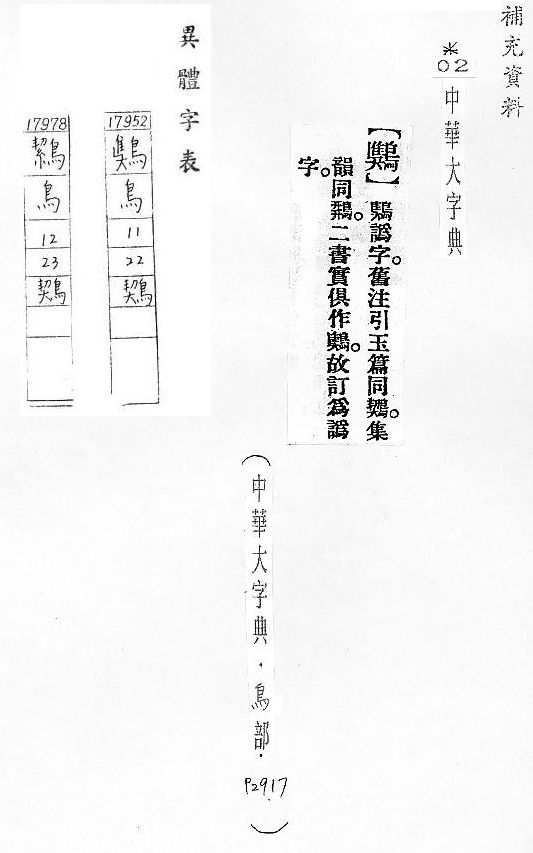 補充資料
*
02
中華大字典
【】譌字。舊注引玉篇同。集
韻同。二書實俱作。故訂爲譌
字。
異體字表
17952
鳥
11
22
17978
鳥
12
23
(中華大字典.鳥部.P2917)